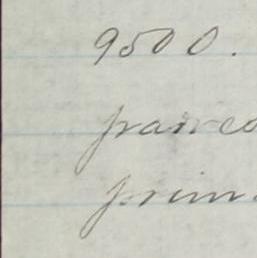 9500.
franco
prim